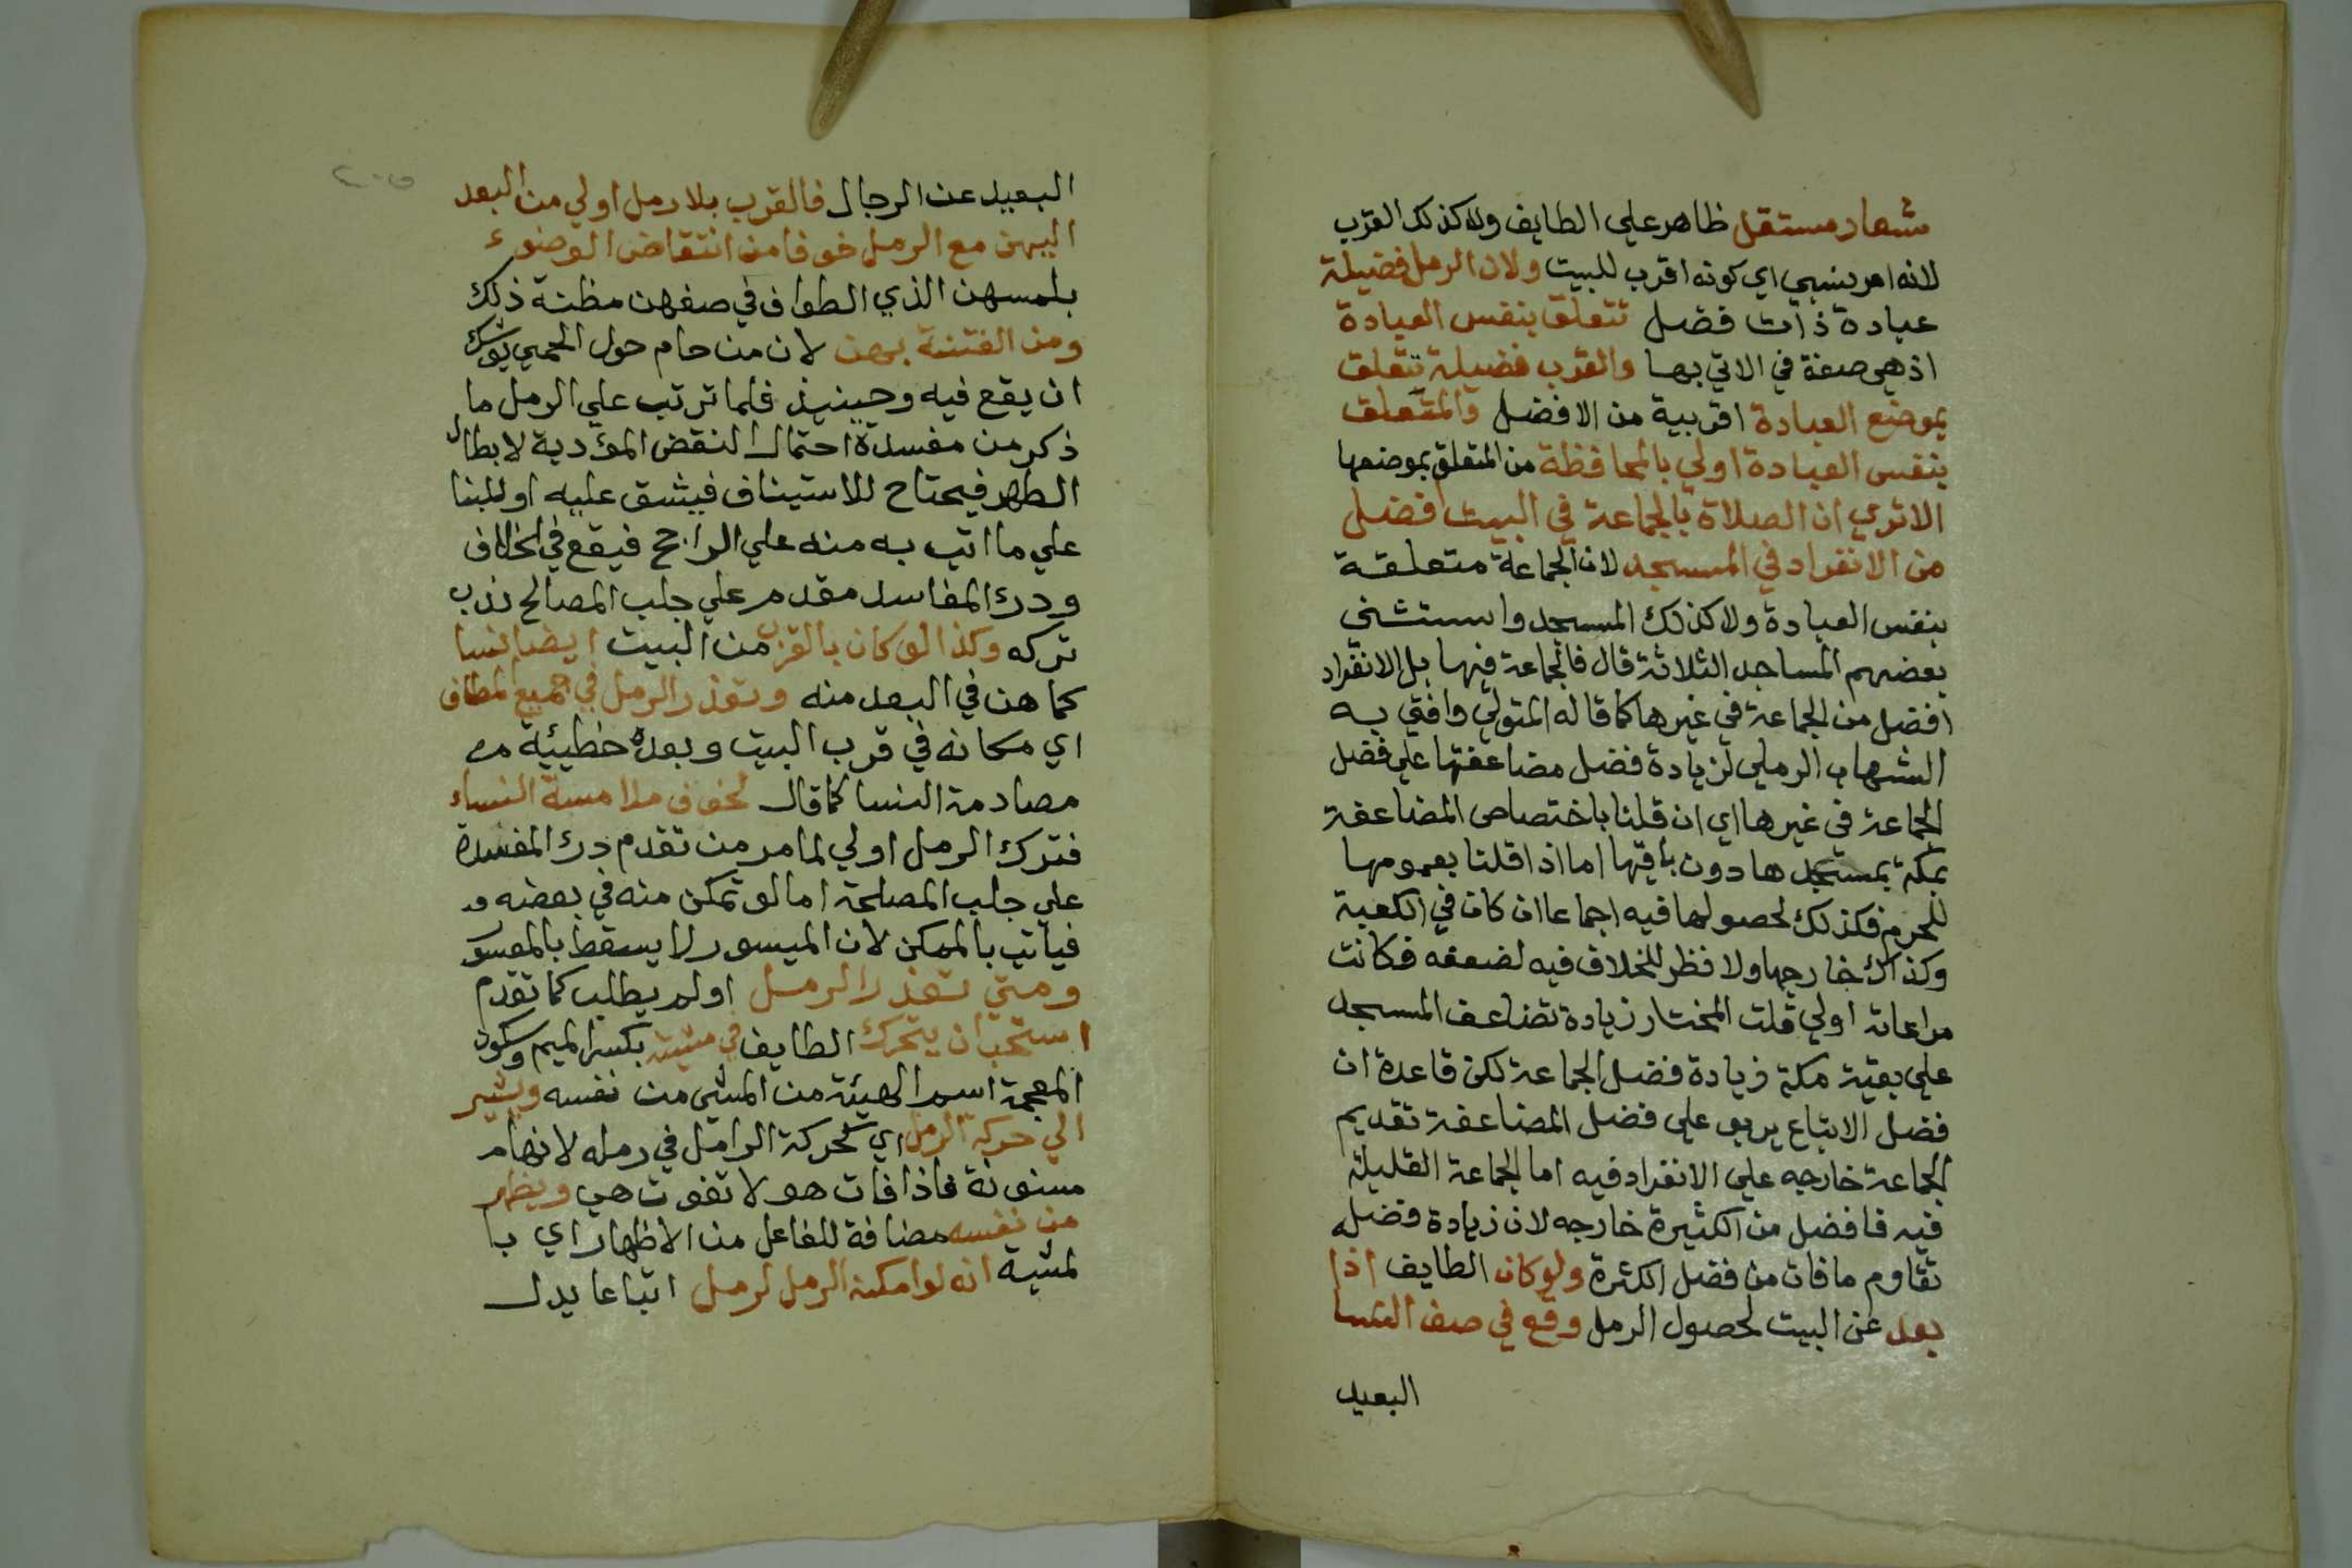 شعار مستقل ظاهر علي الطايف ولا كذلك القرب
لانه امر نسبي اي كونه اقرب للبيت ولان الرمل فضيلة
عبادة ذات فضل تتعلق بنفس العبادة
اذ هي صفة في الاتي بها والقرب فضيلة تتعلق
بموضع العبادة اقربية من الافضل والمتعلق
بنفس العبادة اولي بالمحافظة من المتعلق بموضعها
الا تري ان الصلاة بالجماعة في البيت افضل
من الانفراد في المسجد لان الجماعة متعلقة
بنفس العبادة ولا كذلك المسجد واستثني
بعضهم المساجد الثلاثة قال فالجماعة فيها بل الانفراد
افضل من الجماعة في غيرها كما قاله المتولي وافتي به
الشهاب الرملي لزيادة فضل مضاعفتها علي فضل
الجماعة في غيرها اي ان قلنا باختصاص المضاعفة
بمكة بمسجدها دون باقيها اما اذا قلنا بعمومها
للحرم فكذلك لحصولها فيه اجماعا ان كان في الكعبة
وكذاك خارجها ولا نظر للخلاف فيه لضعفه فكانت
مراعاته اولي قلت المختار زيادة تضاعف المسجد
علي بقية مكة زيادة فضل الجماعة لكن قاعدة ان
فضل الاتباع يربو علي فضل المضاعفة تقديم
الجماعة خارجه علي الانفراد فيه اما الجماعة القليلة
فيه فافضل من الكثيرة خارجه لان زيادة فضله
تقاوم ما فات من فضل الكثرة ولو كان الطايف اذا
بعد عن البيت لحصول الرمل وقع في صف النسا
البعيد
٢٠٥
البعيد عن الرجال فالقرب بلا رمل اولي من البعد
اليهن مع الرمل خوفا من انتقاض الوضوء
بلمسهن الذي الطواف في صفهن مظنة ذلك
ومن الفتنة بهن لان من حام حول الحمي يوشك
ان يقع فيه وحينيذ فلما ترتب علي الرمل ما
ذكر من مفسدة احتمال النقض المؤدية لابطال
الطهر فيحتاج للاستيناف فيشق عليه او للبنا
علي ما اتي به منه علي الراجح فيقع في الخلاف
ودرء المفاسد مقدم علي جلب المصالح ندب
تركه وكذا لو كان بالقرب من البيت ايضا نسا
كما هن في البعد منه وتعذر الرمل في جميع المطاف
اي مكانه في قرب البيت وبعده خطيئية من
مصادمة النسا كما قال لخوف ملامسة النساء
فترك الرمل اولي لما مر من تقدم درء المفسدة
علي جلب المصلحة اما لو تمكن منه في بعضه
فياتي بالممكن لان الميسور لا يسقط بالمعسور
ومتي تعذر الرمل او لم يطلب كما تقدم
استحب ان يتحرك الطايف في مشيته بكسر الميم وسكون
المعجمة اسم الهيئة من المشي من نفسه ويشير
الي حركة الرمل اي كحركة الرامل في رمله لانها م
مسنونة فاذا فات هو لا تفوت هي ويظهر
من نفسه مضافة للفاعل من الاظهار اي با
لمشية انه لو امكنه الرمل لرمل اتباعا يدل